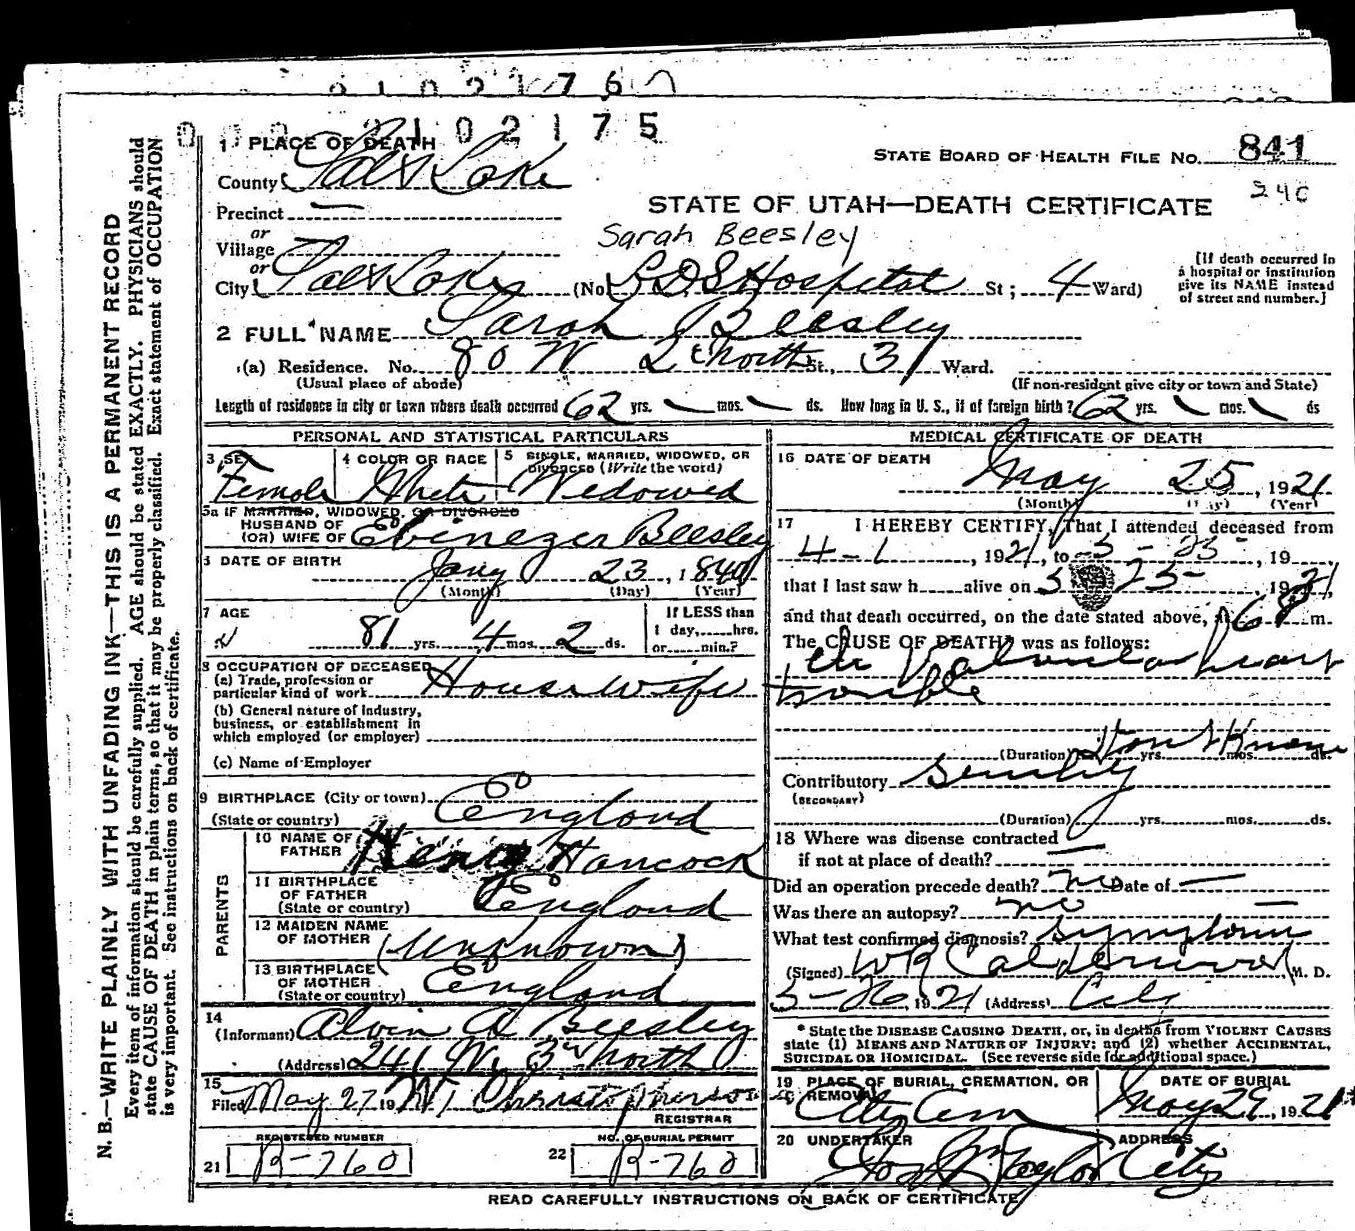 2102175
1 PLACE OF DEATH
STATE BOARD OF HEALTH FILE NO. 841
County Salt Lake
240
Precinct —
STATE OF UTAH—DEATH CERTIFICATE
or
Village
Sarah Beesley
or
City Salt Lake (No. LDS Hospital St; 4 Ward)
[If death occurred in a hospital or institution give its NAME instead of street and number.]
2 FULL NAME Sarah Beesley
(a) Residence. No. 80 W 2 North St., 3 Ward.
(Usual place of abode) (If non-resident give city or town and State)
Length of residence in city or town where death occurred 62 yrs. mos. ds. How long in U. S., if of foreign birth? 62 yrs. mos. ds
PERSONAL AND STATISTICAL PARTICULARS
3 SEX Female
4 COLOR OR RACE White
5 SINGLE, MARRIED, WIDOWED, OR DIVORCED (Write the word) Widowed
5a IF MARRIED, WIDOWED, OR DIVORCED
HUSBAND OF
(OR) WIFE OF Ebinezer Beesley
6 DATE OF BIRTH Jany 23, 1840
(Month) (Day) (Year)
7 AGE 81 yrs. 4 mos. 2 ds.
If LESS than
1 day, hrs.
or min.?
8 OCCUPATION OF DECEASED
(a) Trade, profession or
particular kind of work Housewife
(b) General nature of industry,
business, or establishment in
which employed (or employer)
(c) Name of Employer
9 BIRTHPLACE (City or town)
(State or country) England
PARENTS
10 NAME OF FATHER Henry Hancock
11 BIRTHPLACE OF FATHER (State or country) England
12 MAIDEN NAME OF MOTHER (Unknown)
13 BIRTHPLACE OF MOTHER (State or country) England
14
(Informant) Alvin A Beesley
(Address) 241 W. 3rd North
15
Filed May 27 19 Christopherson
REGISTRAR
REGISTERED NUMBER
21 B-760
NO. OF BURIAL PERMIT
22 B-760
MEDICAL CERTIFICATE OF DEATH
16 DATE OF DEATH
May 25, 1921
(Month) (Day) (Year)
17 I HEREBY CERTIFY, That I attended deceased from
4-1, 1921, to 5-25, 19
that I last saw h alive on 5 25- 1921,
and that death occurred, on the date stated above, at 6 m.
The CAUSE OF DEATH* was as follows:
Valvular heart
trouble
(Duration) Don't Know yrs. mos. ds.
Contributory Senility
(SECONDARY)
(Duration) yrs. mos. ds.
18 Where was disease contracted
if not at place of death? —
Did an operation precede death? no Date of —
Was there an autopsy? no —
What test confirmed diagnosis? Symptoms
(Signed) WR Calderwood M. D.
5-26, 1921 (Address) City
* State the DISEASE CAUSING DEATH, or, in deaths from VIOLENT CAUSES
state (1) MEANS AND NATURE OF INJURY; and (2) whether ACCIDENTAL,
SUICIDAL OR HOMICIDAL. (See reverse side for additional space.)
19 PLACE OF BURIAL, CREMATION, OR
REMOVAL
City Cem
DATE OF BURIAL
May 29, 1921
20 UNDERTAKER
Jos Wm Taylor
ADDRESS
City
READ CAREFULLY INSTRUCTIONS ON BACK OF CERTIFICATE
N. B.—WRITE PLAINLY WITH UNFADING INK—THIS IS A PERMANENT RECORD
Every item of information should be carefully supplied. AGE should be stated EXACTLY. PHYSICIANS should
state CAUSE OF DEATH in plain terms, so that it may be properly classified. Exact statement of OCCUPATION
is very important. See instructions on back of certificate.